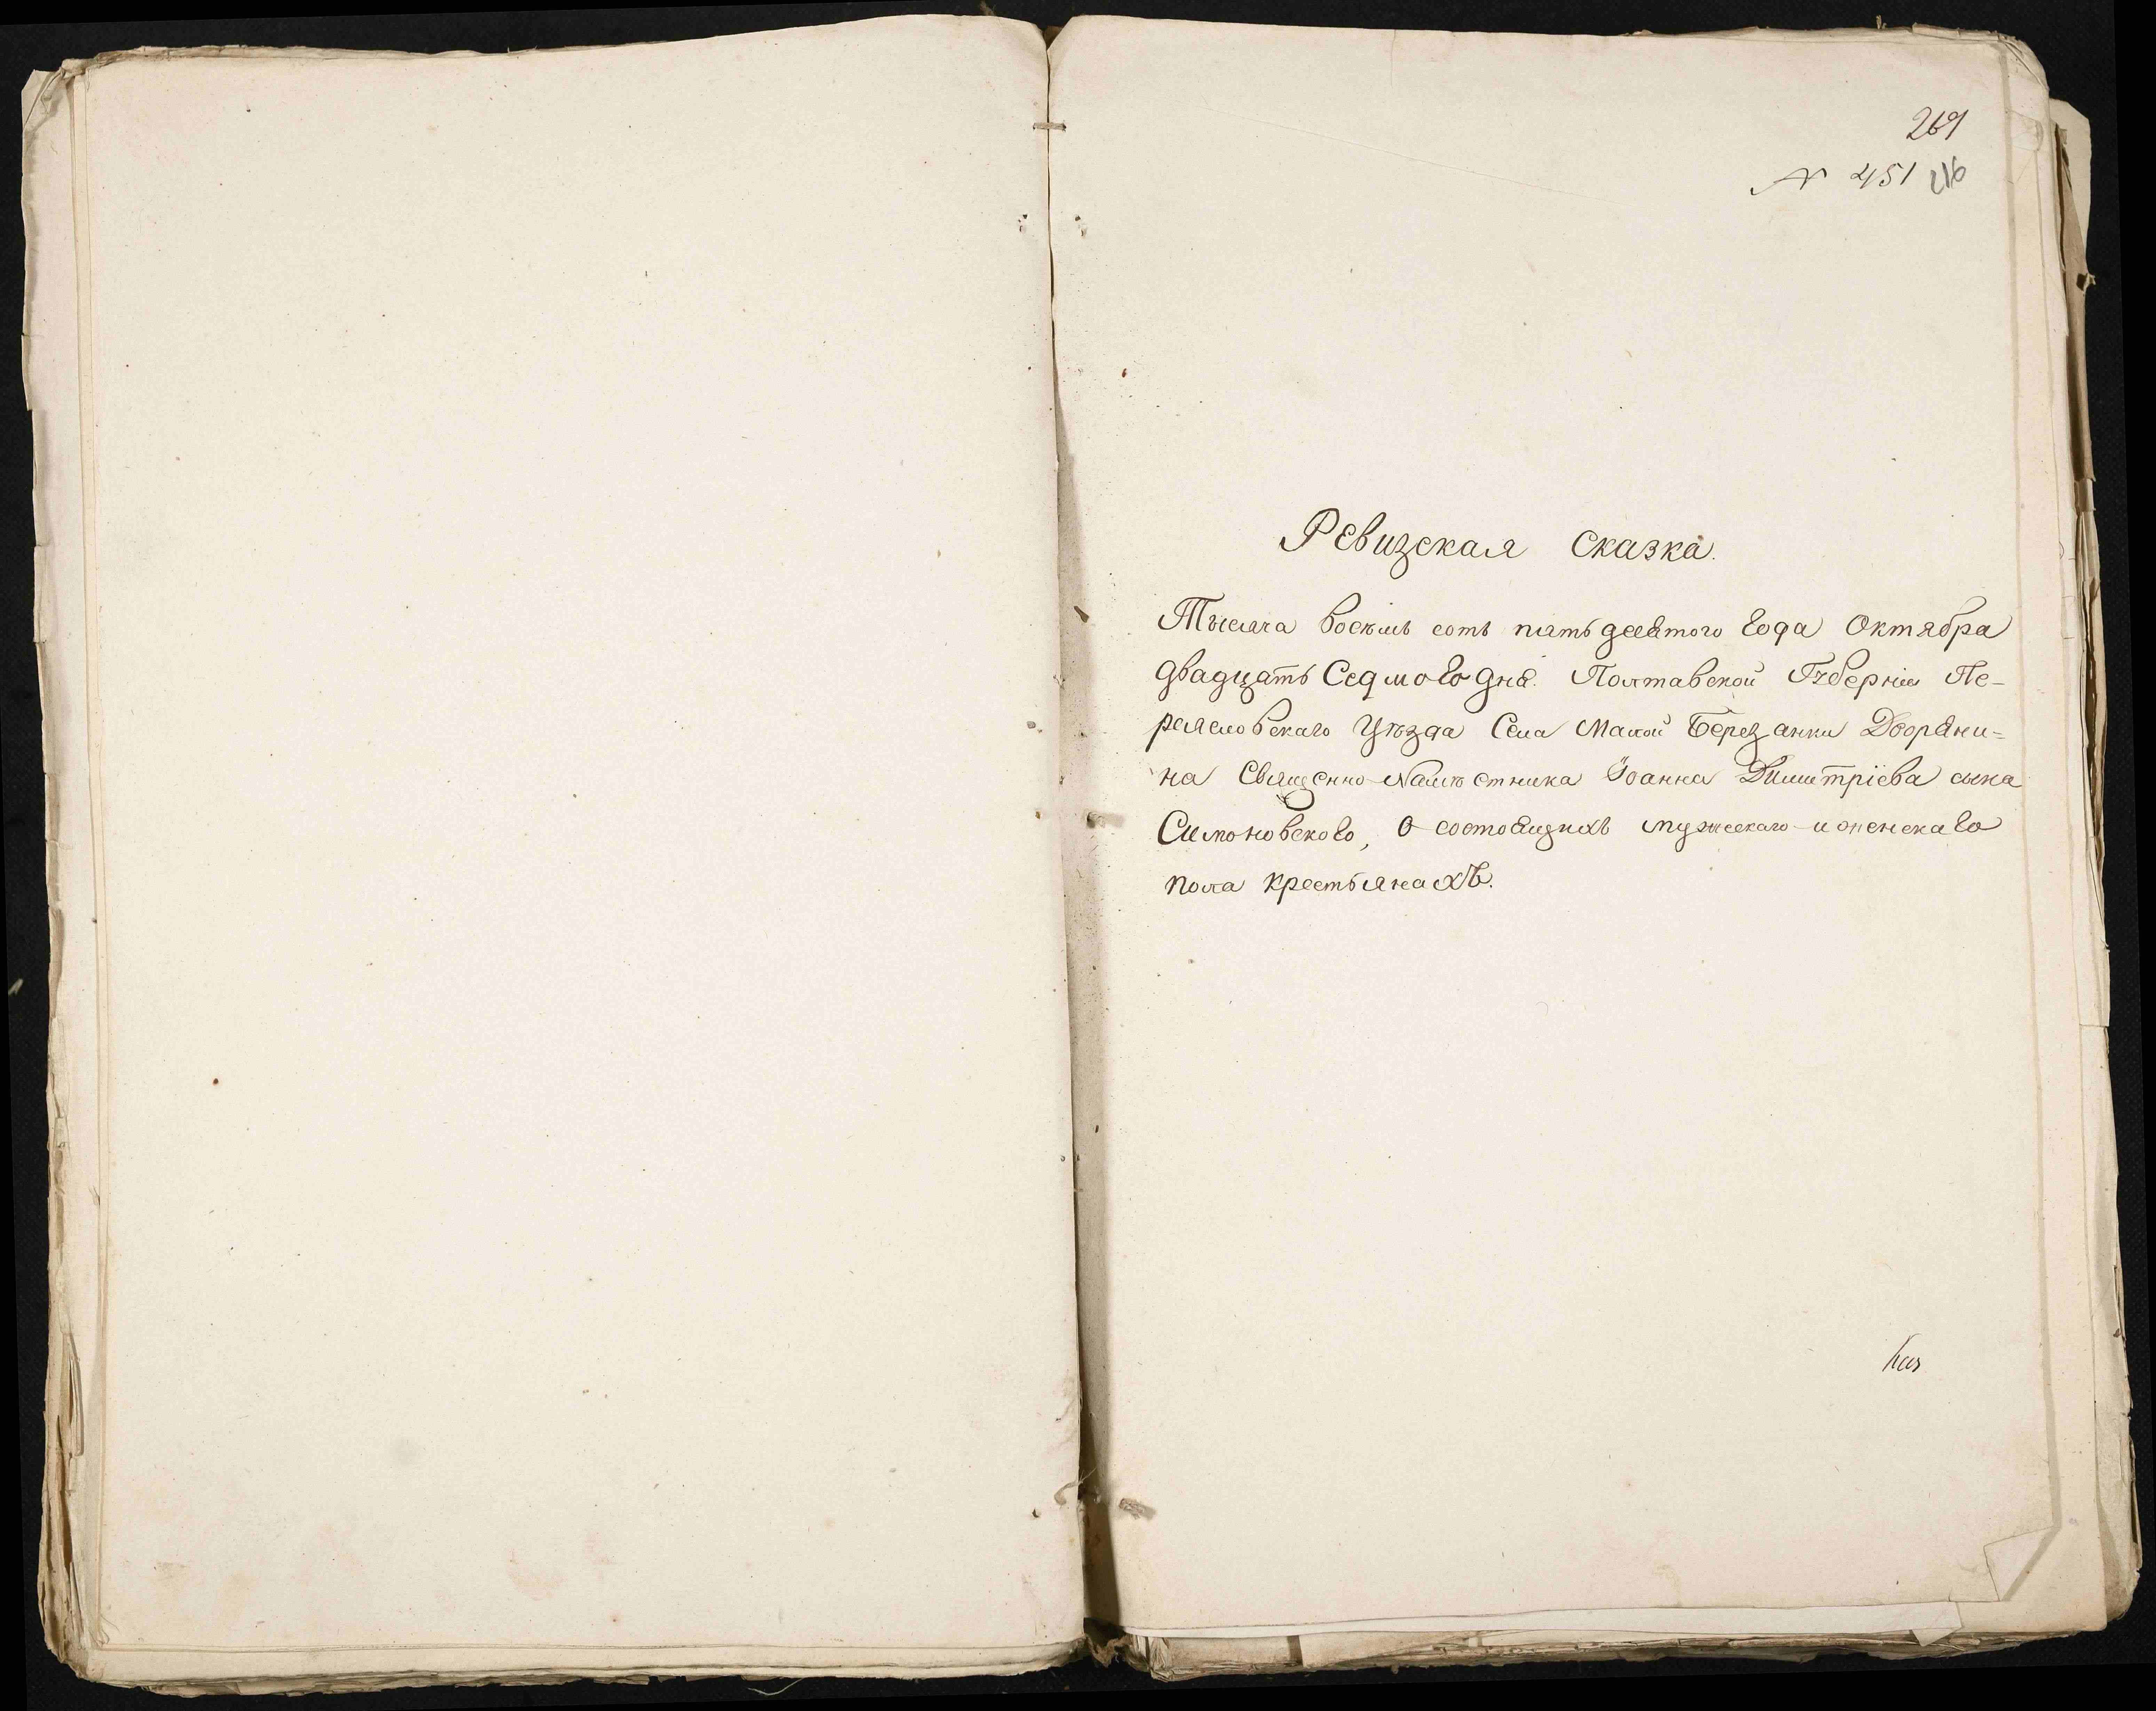 269
№ 451 216
Ревизская сказка.
Тысяча восемь сотъ пятьдесятого года Октября
двадцать Седмого дня. Полтавской Губерніи Пе-
реяcловскаго Уѣзда Села Малой Березанки Дворяни=
на Священно-Намѣстника Іоанна Димитріева сына
Симоновского, О состоящихъ мужескаго и женскаго
пола крестьянахъ.